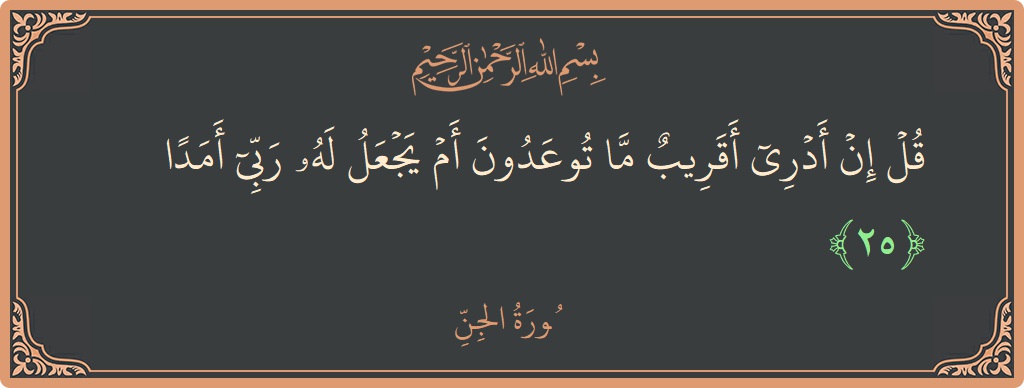 بِسْمِ اللَّهِ الرَّحْمَٰنِ الرَّحِيمِ
قُلْ إِنْ أَدْرِىٓ أَقَرِيبٌ مَّا تُوعَدُونَ أَمْ يَجْعَلُ لَهُۥ رَبِّىٓ أَمَدًا
﴿٢٥﴾
سُورَةُ الجِنِّ